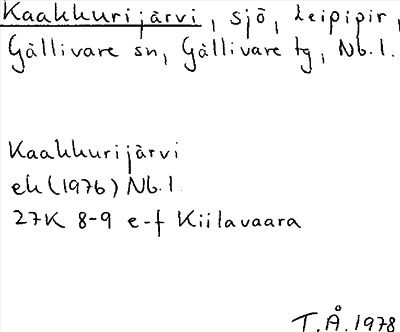 Kaakkurijärvi, sjö, Leipipir,
Gällivare sn, Gällivare tg, Nb.l.
Kaakkurijärvi
ek (1976) Nb.l.
27K 8-9 e-f Kiilavaara
T.Å. 1978